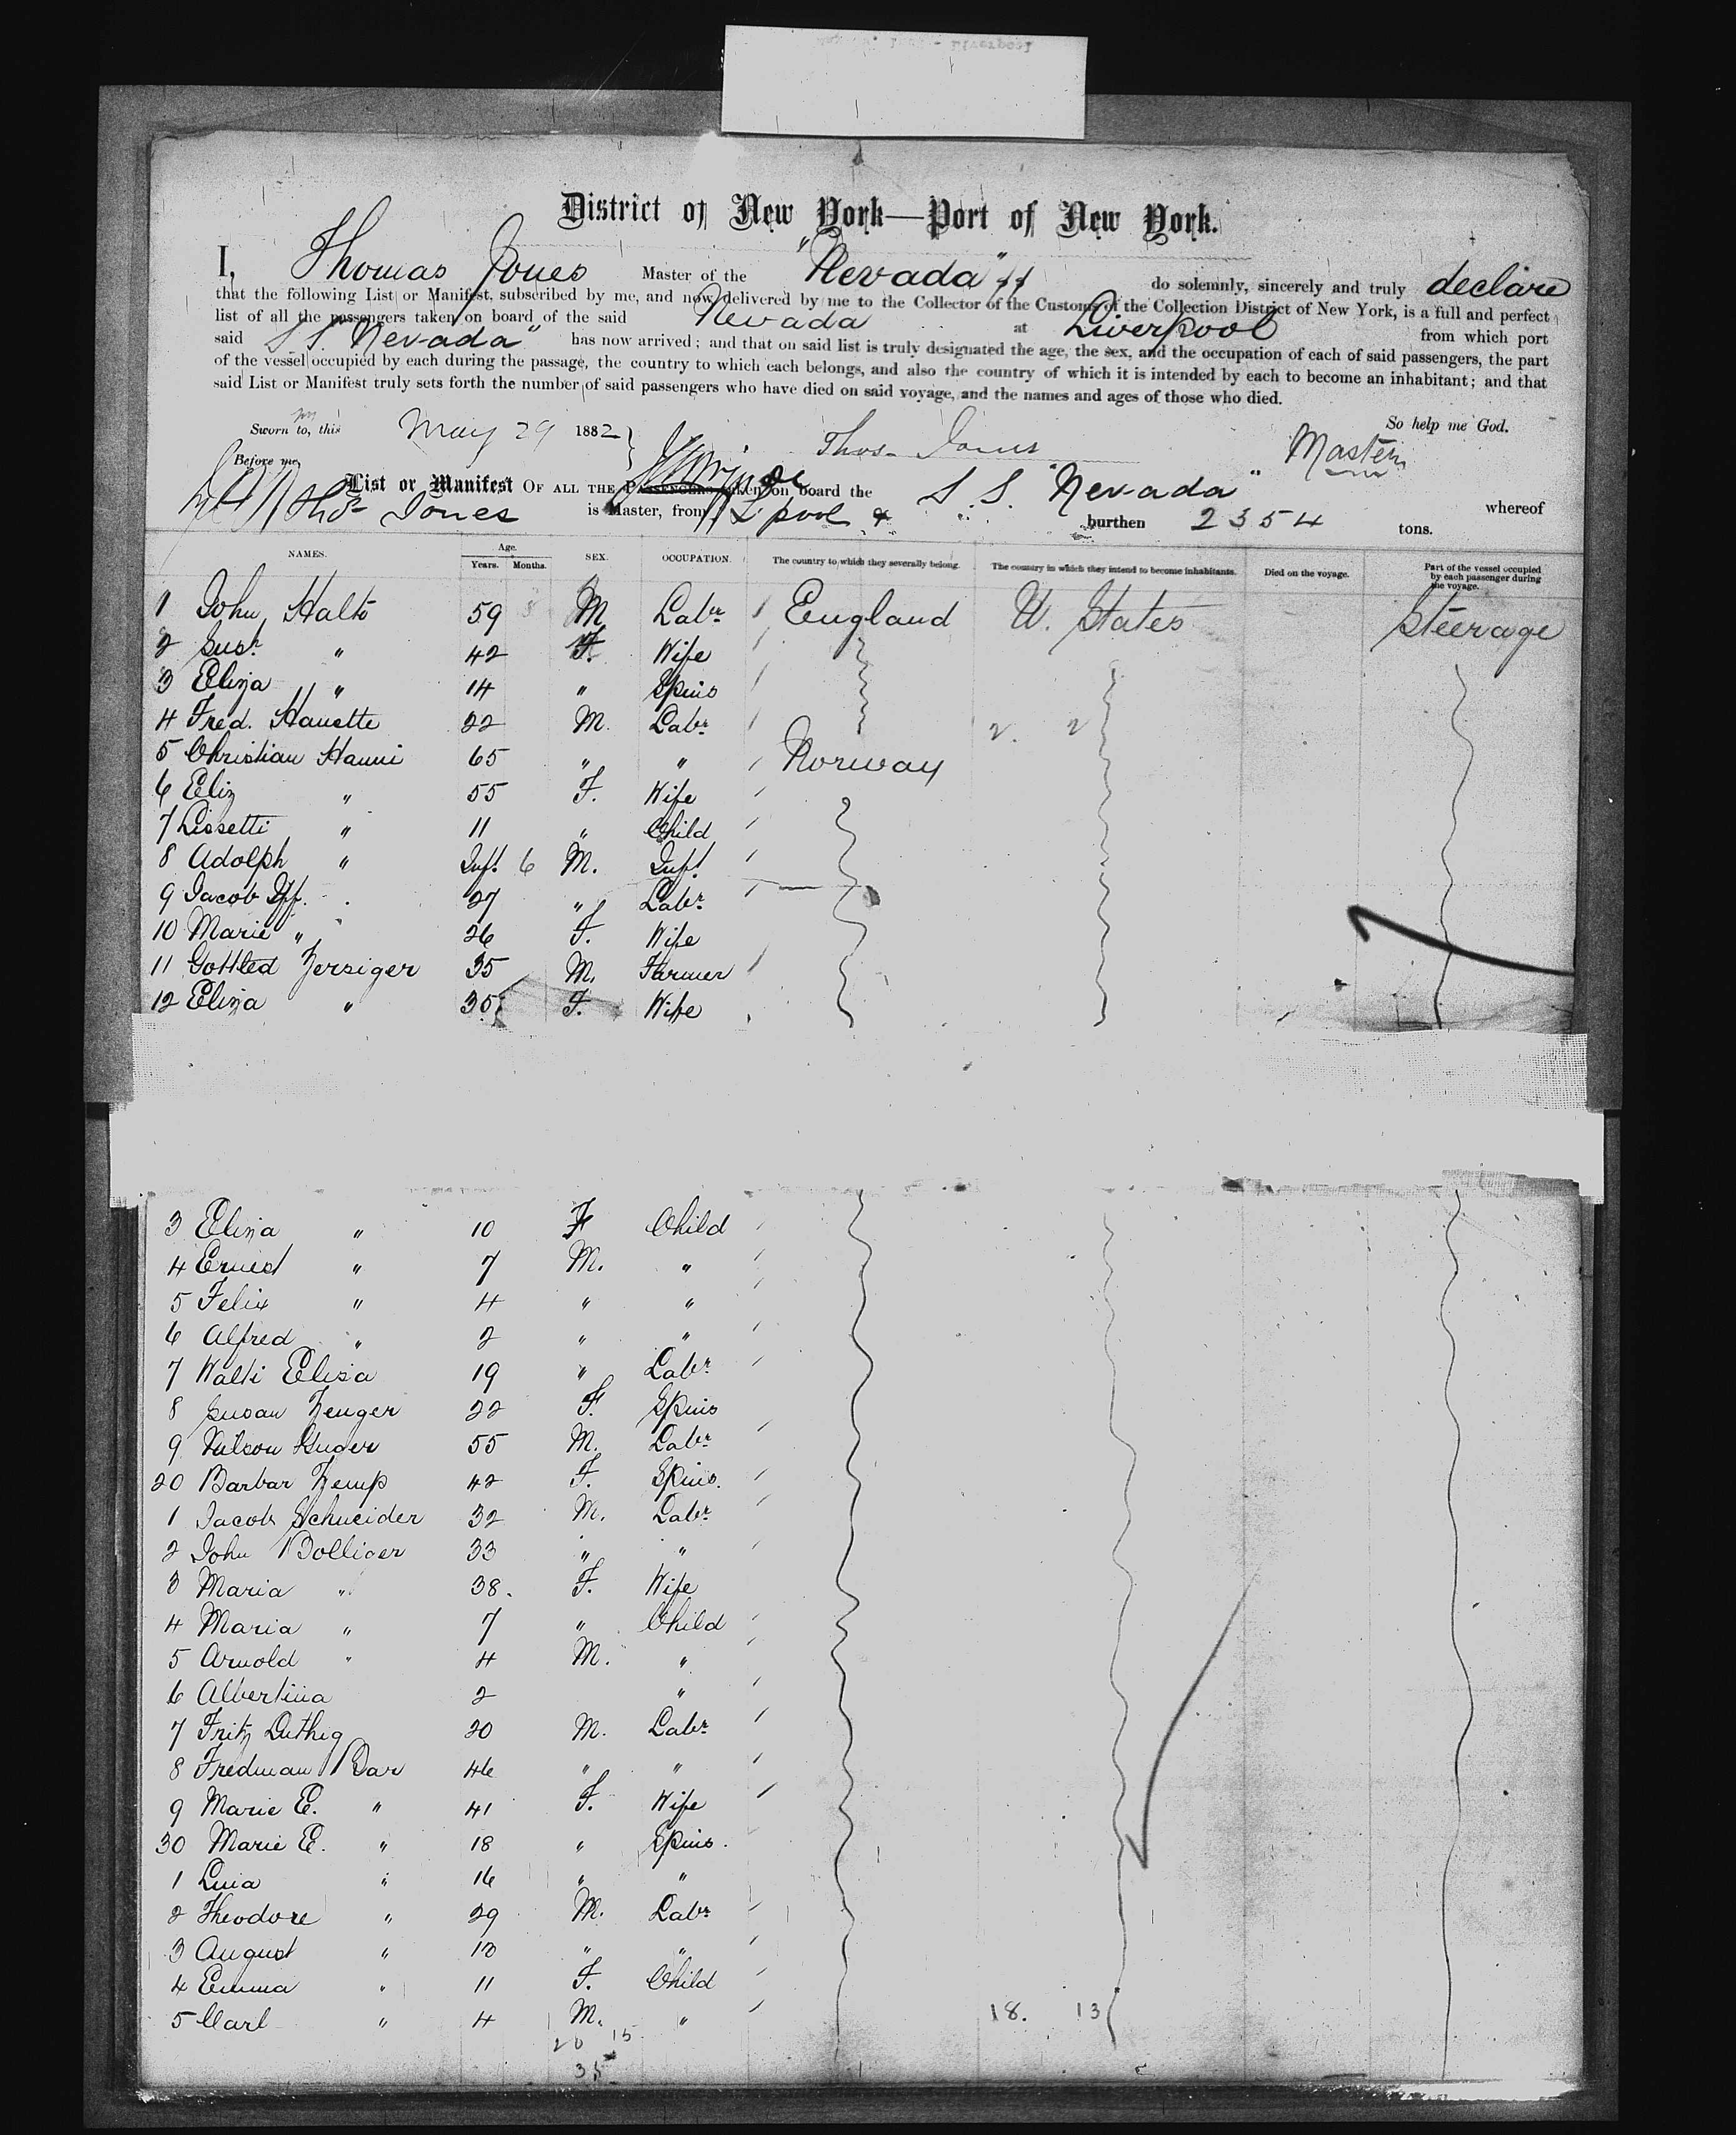 District of New York—Port of New York.
I, Thomas Jones Master of the "Nevada" do solemnly, sincerely and truly declare
that the following List or Manifest, subscribed by me, and now delivered by me to the Collector of the Customs of the Collection District of New York, is a full and perfect
list of all the passengers taken on board of the said Nevada at Liverpool from which port
said S S. "Nevada" has now arrived; and that on said list is truly designated the age, the sex, and the occupation of each of said passengers, the part
of the vessel occupied by each during the passage, the country to which each belongs, and also the country of which it is intended by each to become an inhabitant; and that
said List or Manifest truly sets forth the number of said passengers who have died on said voyage, and the names and ages of those who died.
So help me God.
Sworn to, this May 29 1882 Thos. Jones Master
Before me,
List or Manifest OF ALL THE PASSENGERS taken on board the S. S. "Nevada" whereof
Thos Jones is Master, from L'pool burthen 2354 tons.
NAMES. Age. Years. Months. SEX. OCCUPATION. The country to which they severally belong. The country in which they intend to become inhabitants. Died on the voyage. Part of the vessel occupied by each passenger during the voyage.
1 John Halto 59 M Labr England U. States Steerage
2 Susr " 42 F. Wife
3 Eliza " 14 " Spins
4 Fred. Hauette 22 M. Labr 2. 2
5 Christian Hanni 65 " " Norway
6 Eliz " 55 F. Wife
7 Lissetti " 11 " Child
8 Adolph " Inft 6 M. Inft
9 Jacob Iff. 27 " Labr
10 Marie " 26 F. Wife
11 Gottled Zersiger 35 M. Farmer
12 Eliza " 35 F. Wife
3 Eliza " 10 F Child
4 Ernest " 7 M. "
5 Felix " 4 " "
6 Alfred " 2 " "
7 Walti Elisa 19 " Labr
8 Susan Zenger 22 F. Spins
9 55 M. Labr
20 Barbar Zemp 42 F. Spins.
1 Jacob Schneider 32 M. Labr
2 John Bolliger 33 " "
3 Maria " 38. F. Wife
4 Maria " 7 " Child
5 Arnold " 4 M. "
6 Albertina 2 "
7 Fritz Luthig 20 M. Labr
8 Fredman Bar 46 " "
9 Marie E. " 41 F. Wife
30 Marie E. " 18 " Spins.
1 Lina " 16 " "
2 Theodore " 29 M. Labr
3 August " 13 " "
4 Emma " 11 F. Child
5 Carl " 4 M. " 18. 13
20 15
35